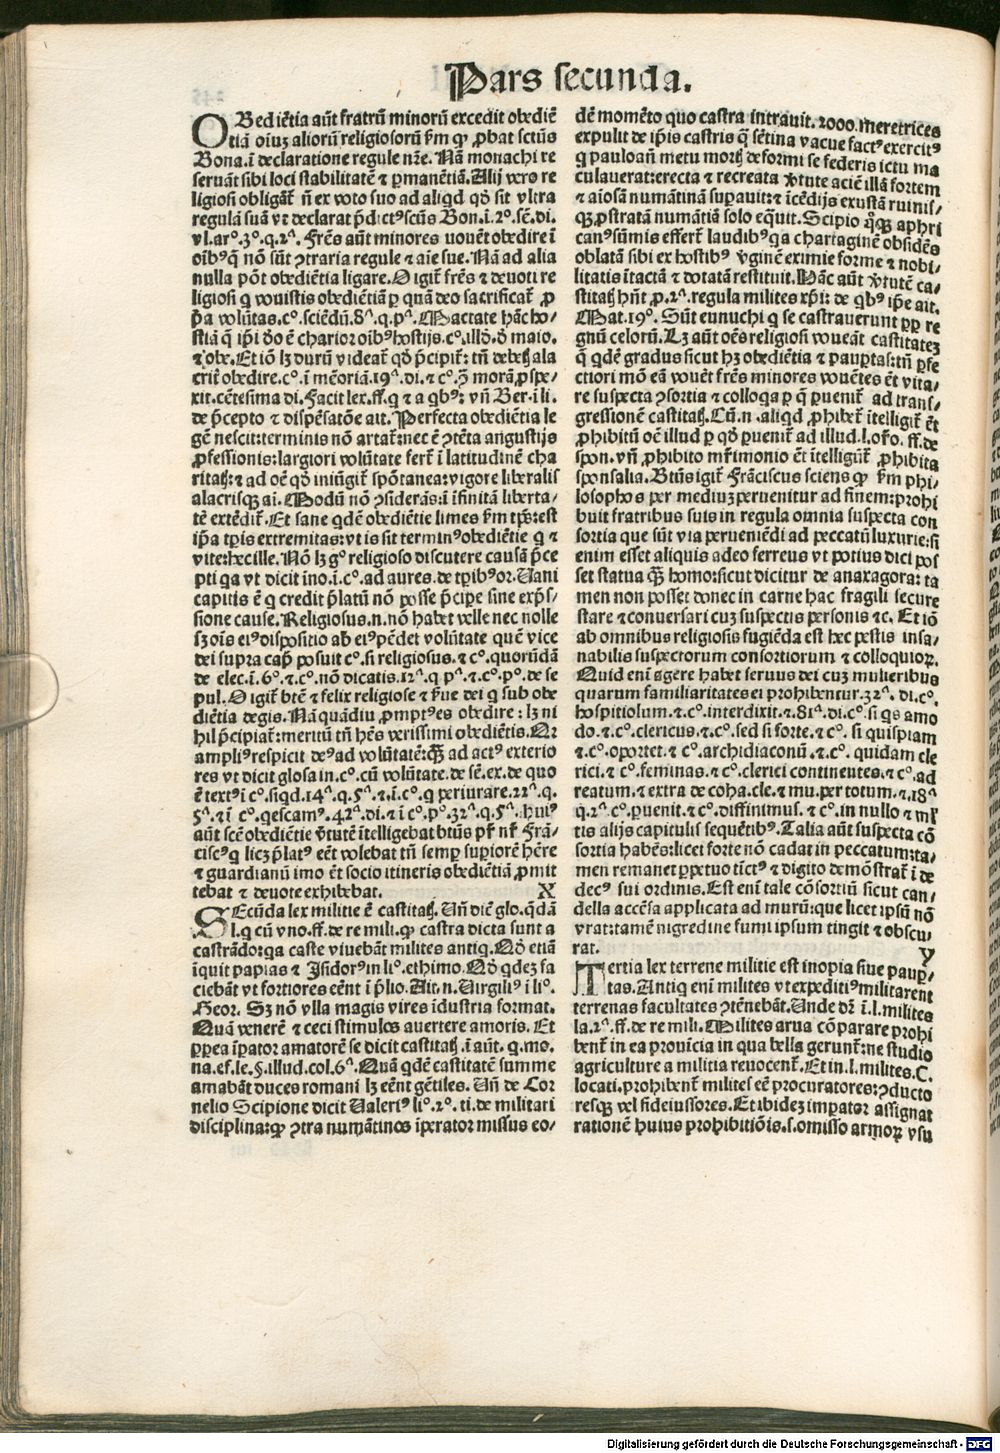 Pars secunda.
OBediētia aūt fratrū minorū excedit obediē
tiā oīuꝫ aliorū religiosorū ẜm ꝙ ꝓbat sctūs
Bona.ī declaratione regule nr̄e. Nā monachi re
seruāt sibi loci stabilitatē ⁊ ꝑmanētiā. Alij vero re
ligiosi obligāt᷑ ñ ex voto suo ad aliqd̛ qd̛ sit vltra
regulā suā vt declarat p̄dictꝰ sctūs Bon.ī.2º.sē.di.
vl.arº.3º.q.2ª. Fr̄es aūt minores vouēt obedire ī
oībꝰ q̄ nō sūt ꝯtraria regule ⁊ aīe sue. Nā ad alia
nulla pōt obediētia ligare. O igit᷑ fr̄es ⁊ deuoti re
ligiosi q̇ vouistis obediētiā ꝑ quā deo sacrificat᷑ ꝓ
p̄a volūtas.cº.sciēdū.8ª.q.pª. Mactate hāc ho⸗
stiā q̄ ip̄i d̛o ē charior oībꝰ hostijs.cº.illd̛.d̛ maio.
⁊ obe. Et iō lꝫ durū videat᷑ qd̛ p̄cipit᷑: tn̄ debetꝭ ala
crit᷑ obedire.cº.ī mēoriā.19ª.di.⁊ cº.q̄ morā.ꝓspe⸗
xit.cētesima di. Facit lex.ff.q̇ ⁊ a qbꝰ: vn̄ Ber.ī li.
de p̄cepto ⁊ dispēsatōe ait. Perfecta obediētia le
gē nescit: terminis nō artat᷑: nec ē ꝯtēta angustijs
ꝓfessionis: largiori volūtate fert᷑ ī latitudinē cha
ritatꝭ: ⁊ ad oē qd̛ iniūgit᷑ spōtanea: vigore liberalis
alacrisqꝫ aī. Modū nō ꝯsiderās: ī īfinitā liberta⸗
tē extēdit᷑. Et sane qdē obediētie limes ẜm tp̄s: est
ip̄a tp̄is extremitas: vt is sit terminꝰ obediētie q̇ ⁊
vite: hec ille. Nō lꝫ gº religioso discutere causā p̄ce
pti qa vt dicit īno.ī.cº.ad aures.de tp̄ibꝰ or. Vani
capitis ē q̇ credit p̄latū nō posse p̄cipe sine exp̄s⸗
sione cause. Religiosus.n.nō habet velle nec nolle
sꝫ oīs eiꝰ dispositio ab eiꝰ pēdet volūtate quē vice
dei supra capꝰ posuit cº.si religiosus.⁊ cº.quorūdā
de elec.ī.6º.⁊ cº.nō dicatis.12ª.q pª.⁊ cº.pº.de se
pul. O igit᷑ btē ⁊ felix religiose ⁊ ẜue dei q̇ sub obe
diētia degis. Nā quādiu ꝓmptꝰ es obedire: lꝫ ni
hil p̄cipiat᷑: meritū tn̄ hēs verissimi obediētis. Qr
ampliꝰ respicit deꝰ ad volūtatē: qꝫ ad actꝰ exterio
res vt dicit glosa in.cº.cū volūtate.de sē.ex.de quo
ē textꝰ ī cº.siqd.14ª.q.5ª.⁊.ī.cº.q̇ periurare.22ª.q.
5ª.⁊ ī cº.qescamꝰ.42ª.di.⁊ ī cº.pº.32ª.q.5ª. huiꝰ
aūt scē obediētie v̛tutē ītelligebat btūs pr̄ nr̄ Frā⸗
ciscꝰ q̇ licꝫ p̄latꝰ eēt volebat tn̄ semp̱ superiorē hēre
⁊ guardianū imo ēt socio itineris obediētiā ꝓmit
tebat ⁊ deuote exhibebat. X
SEcūda lex militie ē castitatꝭ. Un̄ diē glo.qdā
l.q̇ cū vno.ff.de re mili.ꝙ castra dicta sunt a
castrādo: qa caste viuebāt milites antiq̇. Qd̛ etiā
īquit papias ⁊ Isidorꝰ in liº.ethimo. Qd̛ qdeꝫ fa
ciebāt vt fortiores eēnt ī p̄lio. Ait.n. Virgiliꝰ ī liº.
Geor. Sꝫ nō vlla magis vires īdustria format.
Quā venerē ⁊ ceci stimulos auertere amoris. Et
ꝓpea īp̄ator amatorē se dicit castitatꝭ.ī aūt.q̄.mo.
na.ef.le.§.illud.col.6ª. Quā qdē castitatē summe
amabāt duces romani lꝫ eēnt gētiles. Un̄ de Cor
nelio Scipione dicit Valeriꝰ liº.2º.ti.de militari
disciplina: ꝙ ꝯtra numātinos īperator missus eo⸗
dē momēto quo castra intrauit.2000.meretrices
expulit de ip̄is castris q̄ sētina vacue factꝰ exercitꝰ
q̇ pauloan̄ metu mortꝭ deformi se federis ictu ma
culauerat: erecta ⁊ recreata v̛tute aciē illā fortem
⁊ aīosān numātinā supauit: ⁊ īcēdijs exustā ruinis⸗
qꝫ ꝓstratā numātiā solo eq̄uit. Scipio qͥqꝫ aphri
canꝰ sūmis effert᷑ laudibꝰ qa chartaginē obsidēs
oblatā sibi ex hostibꝰ v̛ginē eximie forme ⁊ nobi⸗
litatis ītactā ⁊ dotatā restituit. Hāc aūt v̛tutē ca⸗
stitatꝭ hn̄t ꝓ.2ª.regula milites xp̄i: de qbꝰ ip̄e ait.
Mat.19º. Sūt eunuchi q̇ se castrauerunt pp̱ re
gnū celorū. Lꝫ aūt oēs religiosi voueāt castitateꝫ
q̄ qdē gradus sicut hꝫ obediētia ⁊ paup̱tas: tn̄ ꝑfe
ctiori mō eā vouēt fr̄es minores vouētes ēt vita⸗
re suspecta ꝯsortia ⁊ colloqa ꝑ q̄ ꝑuenit᷑ ad trans⸗
gressionē castitatꝭ. Cū.n.aliqd ꝓhibet᷑ ītelligit᷑ ēt
ꝓhibitū oē illud ꝑ qd̛ ꝑuenit᷑ ad illud.l.orº.ff.de
spon.vn̄ ꝓhibito mr̄imonio ēt ītelligūt᷑ ꝓhibita
sponsalia. Btūs igit᷑ Frāciscus sciens ꝙ ẜm phi⸗
losophos per mediuꝫ peruenitur ad finem: prohi
buit fratribus suis in regula omnia suspecta con
sortia que sūt via perueniēdi ad peccatū luxurie: si
enim esset aliquis adeo ferreus vt potius dici pos
set statua qꝫ homo: sicut dicitur de anaxagora: ta
men non posset donec in carne hac fragili secure
stare ⁊ conuersari cuꝫ suspectis personis ⁊c. Et iō
ab omnibus religiosis fugiēda est hec pestis insa⸗
nabilis suspectorum consortiorum ⁊ colloquioꝝ.
Quid enī agere habet seruus dei cuꝫ mulieribus
quarum familiaritates ei prohibentur.32ª.di.cº.
hospitiolum.⁊.cº.interdixit.⁊.81ª.di.cº.si qs amo
do.⁊.cº.clericus.⁊.cº.sed si forte.⁊ cº. si quispiam
⁊.cº.oportet.⁊ cº.archidiaconū.⁊.cº. quidam cle
rici.⁊ cº.feminas.⁊ cº.clerici continentes.⁊ cº.ad
reatum.⁊ extra de coha.cle.⁊ mu.per totum.⁊.18ª
q.2ª cº.ꝑuenit.⁊ cº.diffinimus.⁊ cº.in nullo ⁊ ml̛
tis alijs capitulis sequētibꝰ. Talia aūt suspecta cō
sortia habēs: licet forte nō cadat in peccatum: ta⸗
men remanet ꝑpetuo tīctꝰ ⁊ digito demōstrat᷑ ī de
decꝰ sui ordinis. Est enī tale cōsortiū sicut can⸗
della accēsa applicata ad murū: que licet ipsū nō
vrat: tamē nigredine fumi ipsum tingit ⁊ obscu⸗
rat. Y
TErtia lex terrene militie est inopia siue paup̱⸗
tas. Antiq̇ enī milites vt expeditiꝰ militarent
terrenas facultates ꝯtēnebāt. Unde dr̄ ī.l.milites
la.2ª.ff.de re mili. Milites arua cōparare prohi
bent᷑ in ea prouīcia in qua bella gerunt᷑: ne studio
agriculture a militia reuocent᷑. Et in.l.milites.C.
locati.prohibent᷑ milites eē procuratores: ꝯducto
resqꝫ vel fideiussores. Et ibideꝫ imp̱ator assignat
rationē huius prohibitiōis.s.omisso armoꝝ vsu
Digitalisierung gefördert durch die Deutsche Forschungsgemeinschaft - DFG